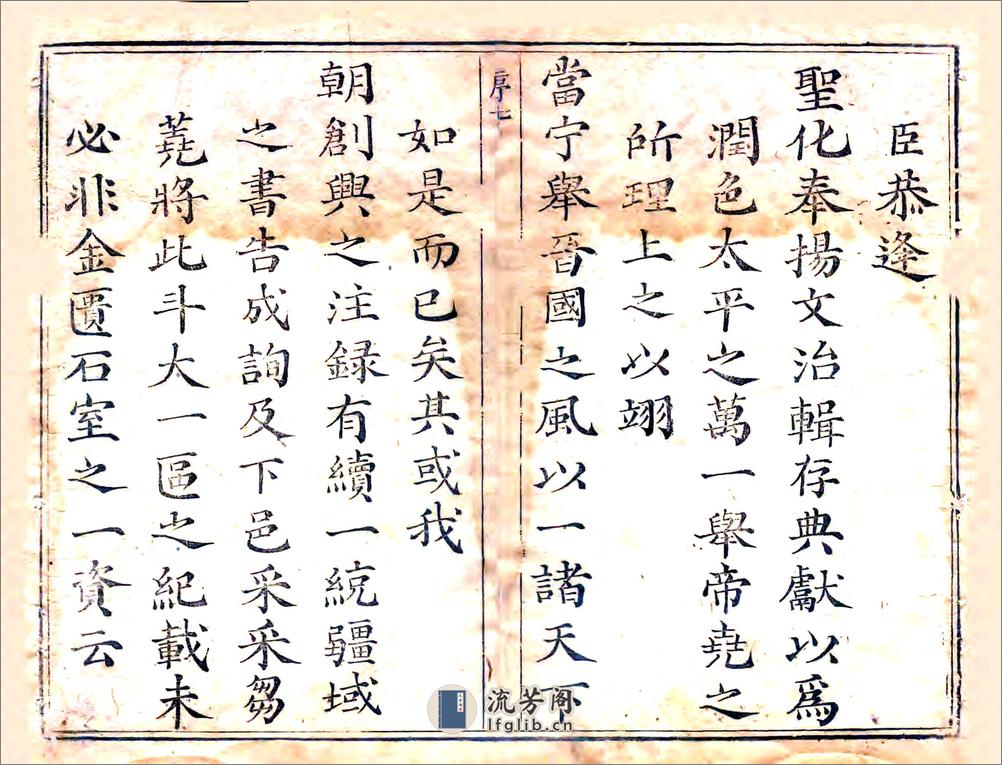 臣恭逢
聖化奉揚文治輯存典獻以爲
潤色太平之萬一舉帝堯之
所理上之以翊
當宁舉晉國之風以一諸天下
序七
如是而已矣其或我
朝創興之注録有續一統疆域
之書告成詢及下邑采采芻
蕘將此斗大一區之紀載未
必非金匱石室之一資云
流芳阁
lfglib.cn